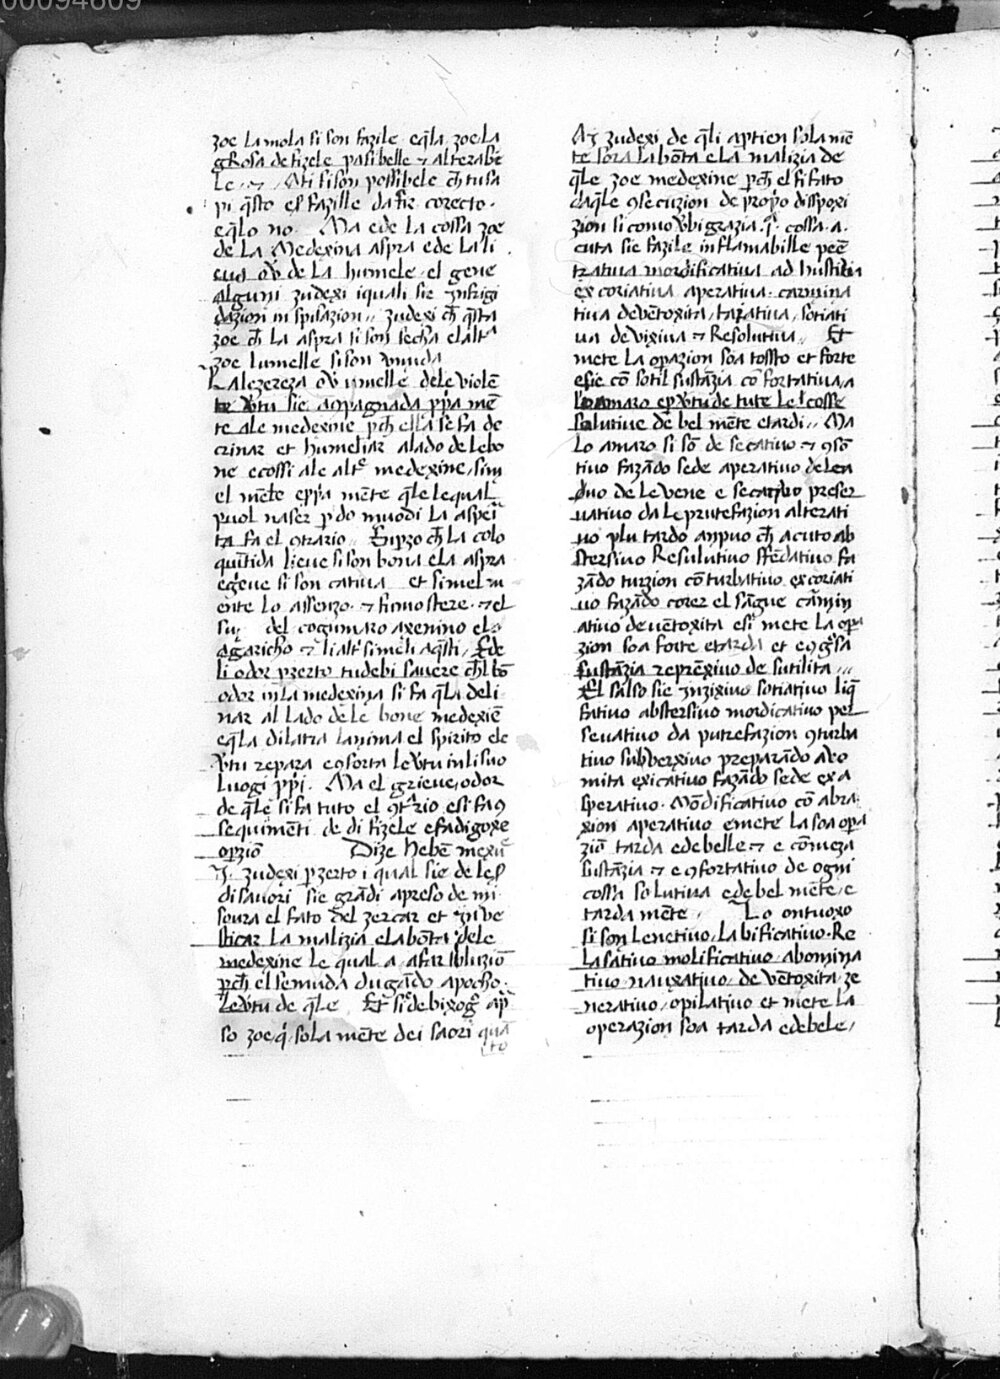 00094609
zoe la mola si son fazile eq̃la zoe la
gRosa de fizele pasibelle ⁊ alterabi
le ⁊ Ati si son possibele ch̃ tu sa
pi q̃sto es fazille da fir corecto ·
eq̃lo no · Ma ede la cossa zoe
de la Medexina aspra ede la li
de la humele el gene
alguni zudexi i quali sie Infrigi
dazion in spisazion zudexi ch̃ q̃sta
zoe ch̃ la aspra si son secha el altª
zoe lumelle si son vmida
dele viole
sie acp̃agnada p̱p̱a mẽ
te ale medexine p̱ch̃ ella se fa de
clinar et humeliar alado de le bo
ne ecossi ale alt̃e medexine sim
el mẽte ep̱p̱a mẽte q̃le lequal
puol naser p̱ do muodi la aspei
ta fa el 9trario Eip̱zo ch̃ la colo
quĩtida lieue si son bona ela aspra
egr̃eue si son catiua et simel m
ente lo assenzo ⁊ fumostere ⁊ el
suz del cogumaro axenino el
agaricho ⁊ li alt̃ simeli aq̃sti Ede
li odor p̱zerto tu debi sauere ch̃l bõ
odor in la medexina si fa q̃la decli
nar al lado de le bone medexĩe
eq̃la dilatra lanima el spirito ele
v̾tu repara e9forta le v̾tu in li suo
luogi p̱p̱i · Ma el grieue odor
de q̃le si fa tuto el 9trãrio esi fa 9
sequimẽti de di fizele efadigoxe
op̱ziõ Dize hebẽ mexuẽ
I zudexi p̱zerto i qual sie de le s̃
di sauori sie grãdi apreso de mi
soura el fato del zercar et Inue
sticar la malizia ela bõta dele
medexine le qual a afar solu̾ziõ
p̱ch̃ el semuda dugãdo apocho
le v̾tu de q̃le Et si de bixogñ ap̃
so zoe q̃ sola mẽte dei saori quã
to
Ai zudexi de q̃li ap̱tien sola mẽ
te sora la bõta ela malizia de
q̃le zoe medexine p̱ch̃ el si fato
daq̃le 9secuzion de prop̱o disspoxi
zion si como v̾bigrazia q̃ cossa a
cuta sie fazile inflamabille penẽ
tratiua mordificatiua ad hustiua
excoriatiua aperatiua carmina
tiua de vẽtoxita tajatiua sotiati
ua de vixiua ⁊ Resolutiua Et
mete la opazion soa tossto et forte
esie cõ sotil sustãzia cõfortatiua a
lo amaro ep̱ v̾tu de tute le cosse
solutiue de bel mẽte etardi Ma
lo amaro si sõ de secatiuo ⁊ 9sũ
tiuo fazãdo sede aperatiuo de le a
duo de le vene e secatiuo preser
uatiuo da le prutefazion alterati
uo plu tardo anpuo ch̃ acuto ab
stersiuo Resulutiuo sfẽdatiuo fa
zãdo turzion cõturbatiuo excoriati
uo fazãdo corer el sãgue cãrmin
atiuo de vẽtoxita esi mete la op̱a
zion soa forte etarda et eq gr̃sa
sustãzia reprẽxiuo de sutilita
El salso sie Inzixiuo sotiatiuo liq̃
fatiuo abstersiuo mordicatiuo per
seuatiuo da putrefazion 9turba
tiuo subverxiuo preparãdo a vo
mita exicatiuo fazãdo sede exa
speratiuo · Mõdificatiuo cõ abra
xion aperatiuo emete la soa op̱a
ziõ tarda ede belle ⁊ e cõmeza
sustãzia ⁊ e 9fortatiuo de ogni
cossa solutiua ede bel mẽte e
tarda mẽte Lo ontuoxo
si son Lenetiuo labificatiuo Re
lasãtiuo molificatiuo abomina
tiuo nauxatiuo de vẽtoxita ze
neratiuo opilatiuo et mete la
operazion soa tarda edebele